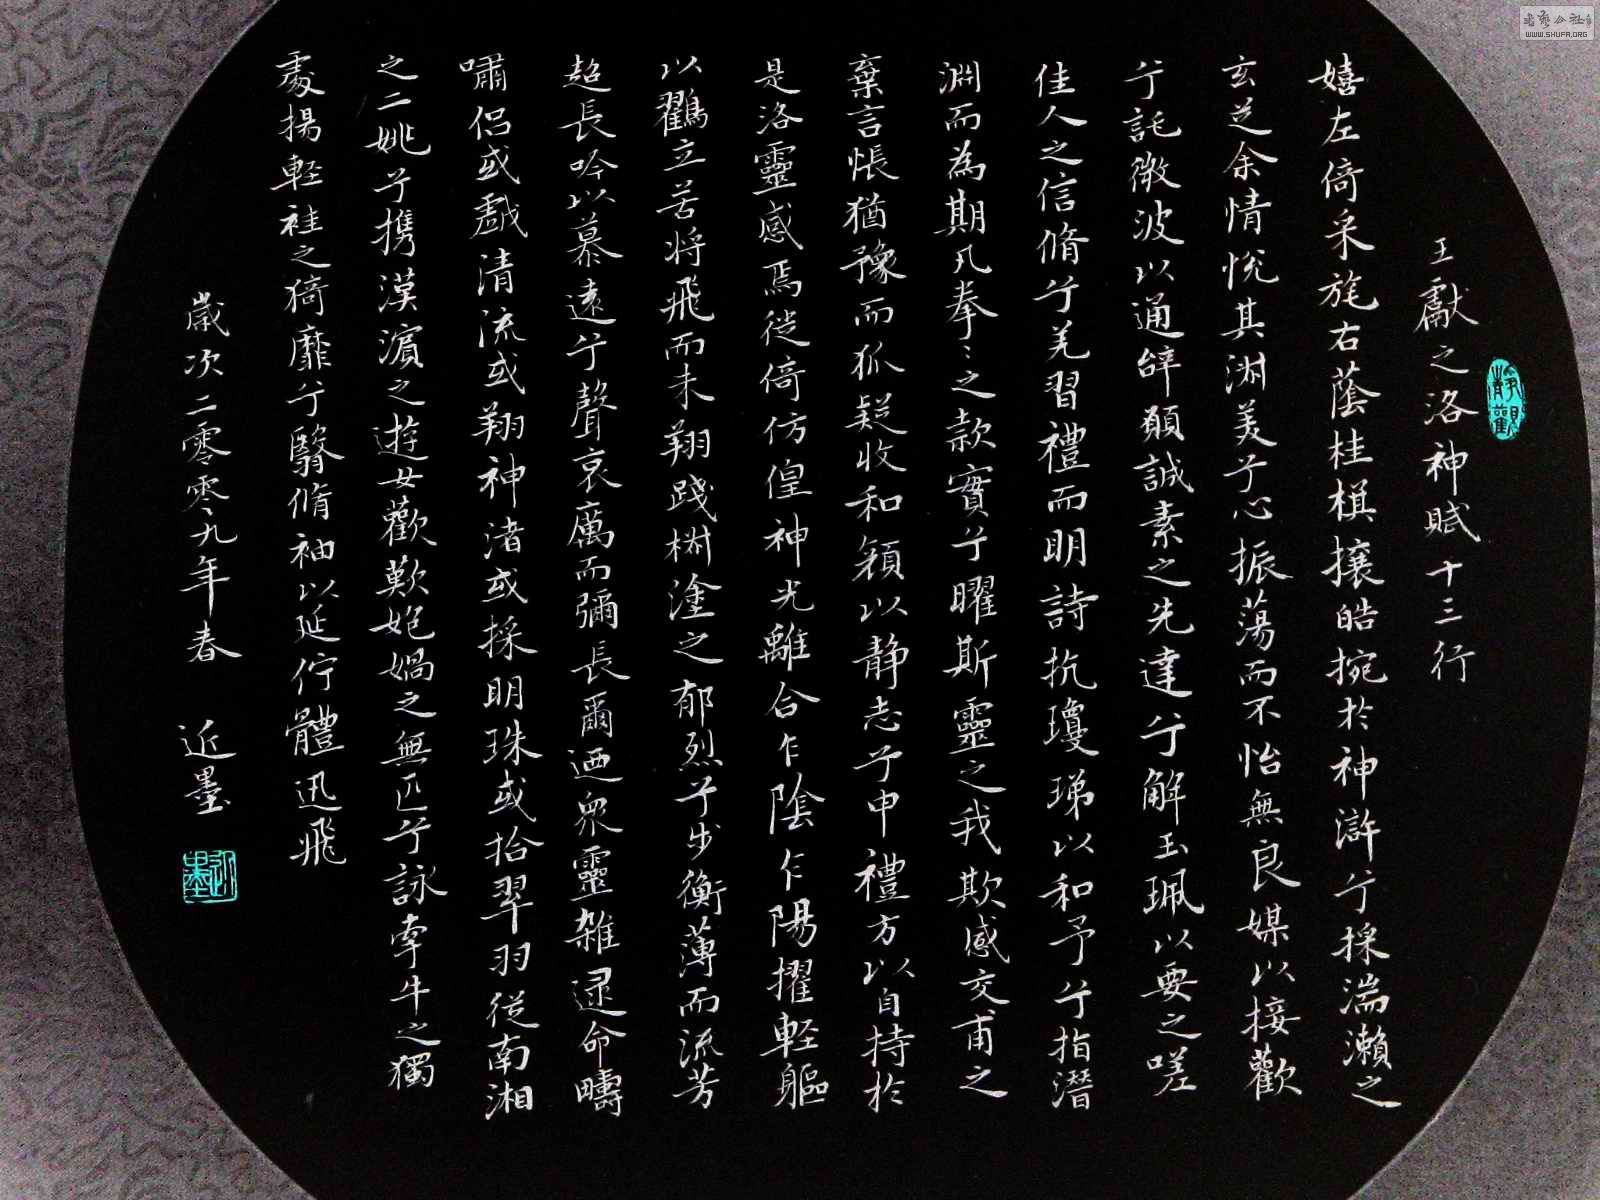 王獻之洛神賦十三行
嬉左倚采旄右蔭桂棋攘皓捥於神滸兮採湍瀨之
玄芝余情悅其淑美兮心振蕩而不怡無良媒以接歡
兮託微波以通辭願誠素之先達兮解玉珮以要之嗟
佳人之信脩兮羌習禮而明詩抗瓊珶以和予兮指潛
淵而為期執拳〻之款實兮曜斯靈之我欺感交甫之
棄言悵猶豫而狐疑收和顏以静志兮申禮方以自持於
是洛靈感焉徙倚仿偟神光離合乍陰乍陽擢軽軀
以鸛立若将飛而未翔踐椒塗之郁烈兮步衡薄而流芳
超長吟以慕遠兮聲哀厲而彌長爾迺衆靈雜遝命疇
嘯侶或戲清流或翔神渚或採明珠或拾翠羽從南湘
之二姚兮攜漢濱之遊女歡匏媧之無匹兮詠牽牛之獨
處揚軽袿之猗靡兮翳脩袖以延佇體迅飛
歲次二零零九年春 近墨
靜觀
近墨
WWW.SHUFA.ORG